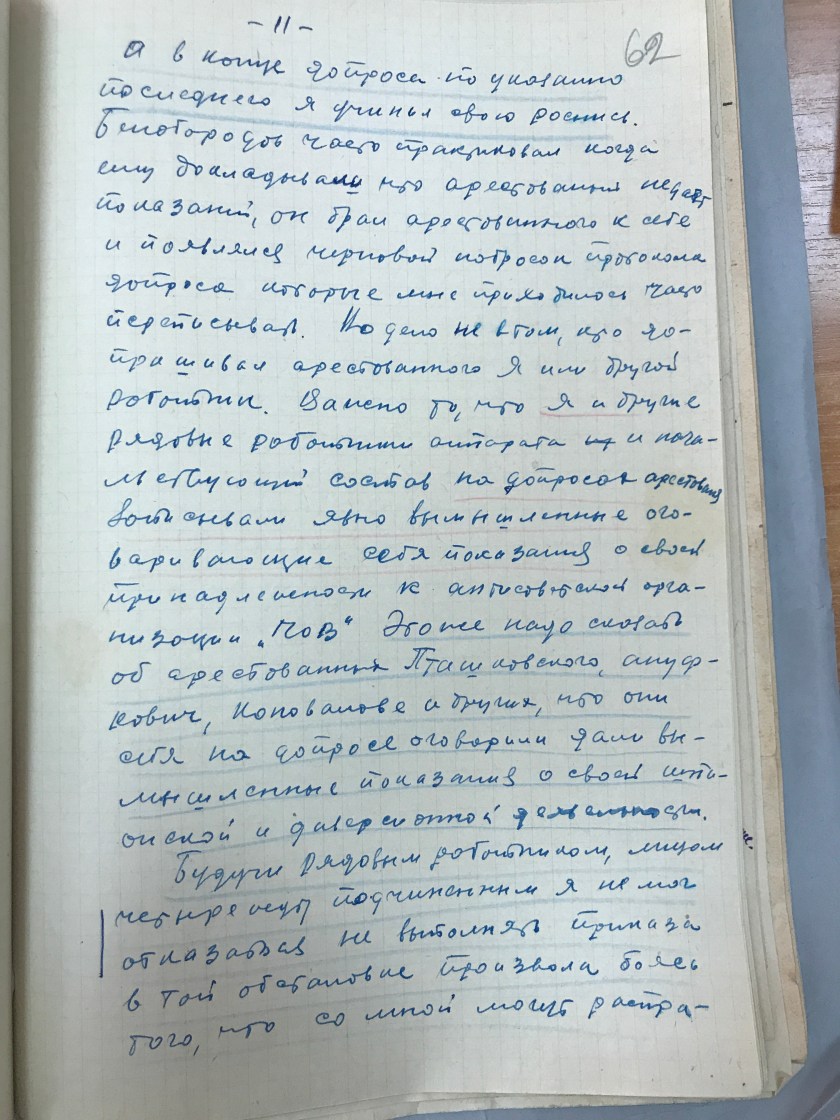 - 11 -
62
А в конце допроса по указанию
последнего я учинял свою роспись.
Белобородов часто практиковал когда
ему докладывали что арестованный не дает
показаний, он брал арестованного к себе
и появлялся черновой набросок протокола
допроса которые мне приходилось часто
переписывать. Но дело не в том, кто до-
прашивал арестованного я или другой
работник. Важно то, что я и другие
рядовые работники аппарата и нача-
льствующий состав на допросах арестованных
записывали явно вымышленные ого-
варивающие себя показания о своей
принадлежности к антисоветской орга-
низации „ПОВ" Это же надо сказать
об арестованных Пташковского, Ануф-
рович, Коновалове и других, что они
себя на допросе оговорили дали вы-
мышленные показания о своей шпи-
онской и диверсионной деятельности.
Будучи рядовым работником, лицом
подчиненным я не мог
отказаться не выполнять приказа
в той обстановке произвола боясь
того, что со мной могут распра-